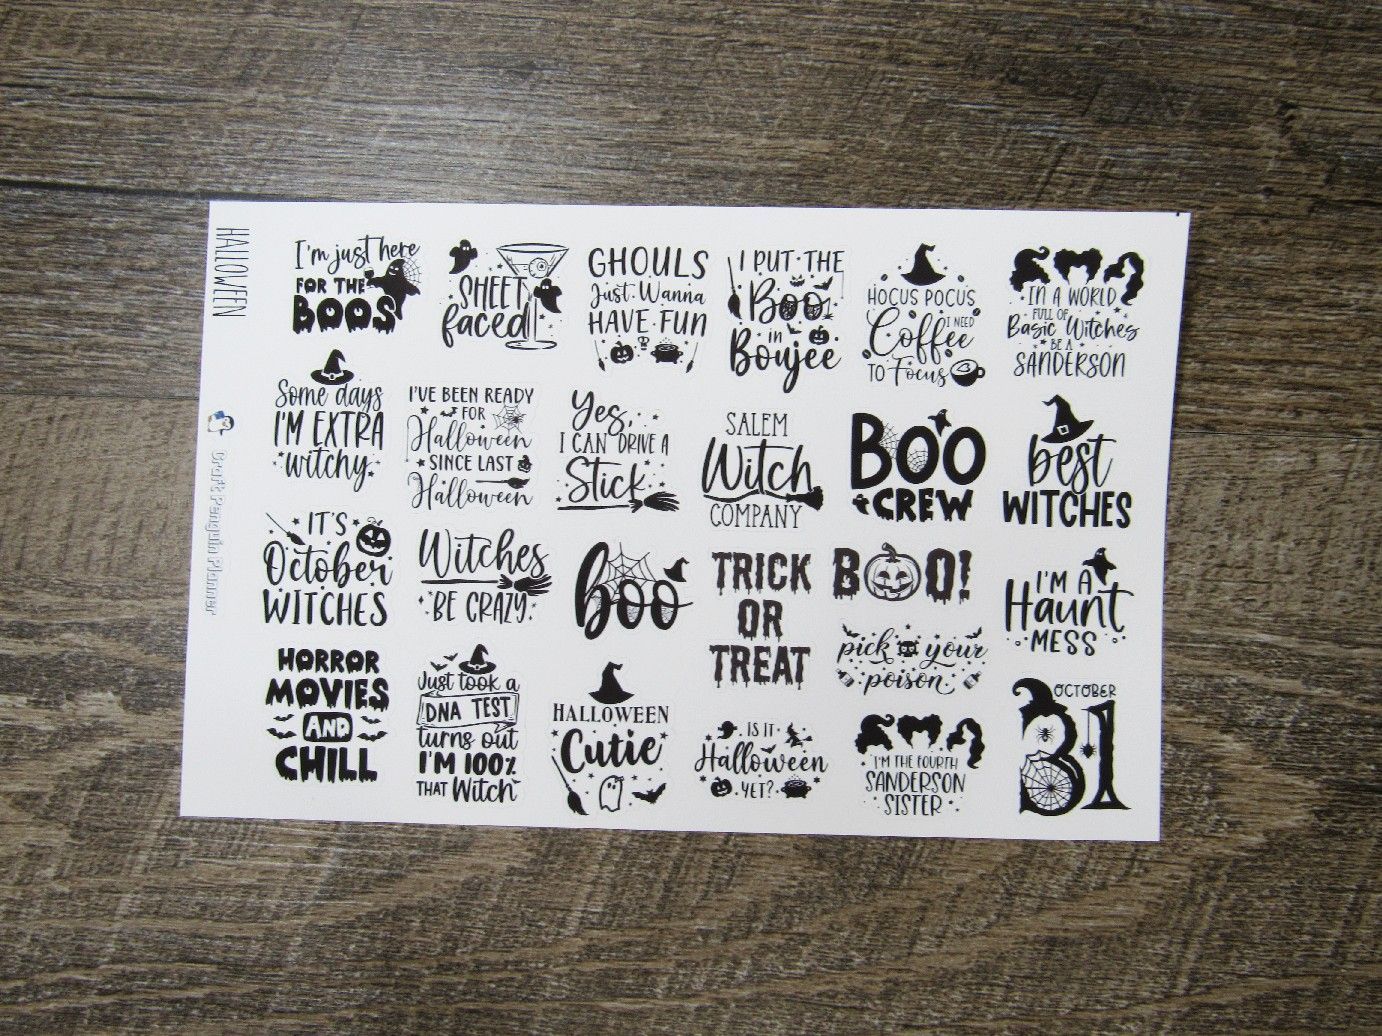 HALLOWEEN
Craft Penguin Planner
I'm just here
FOR THE
BOOS
SHEET
faced
GHOULS
Just Wanna
HAVE FUN
I PUT THE
Boo
in
Boujee
HOCUS POCUS
I NEED
Coffee
TO Focus
IN A WORLD
FULL OF
Basic Witches
BE A
SANDERSON
Some days
I'M EXTRA
witchy
I'VE BEEN READY
FOR
Halloween
SINCE LAST
Halloween
Yes,
I CAN DRIVE A
Stick
SALEM
Witch
COMPANY
BOO
CREW
best
WITCHES
IT'S
October
WITCHES
Witches
BE CRAZY
boo
TRICK
OR
TREAT
BOO!
pick your
poison
I'M A
Haunt
MESS
HORROR
MOVIES
AND
CHILL
Just took a
DNA TEST
turns out
I'M 100%
THAT Witch
HALLOWEEN
Cutie
IS IT
Halloween
YET?
I'M THE FOURTH
SANDERSON
SISTER
OCTOBER
31